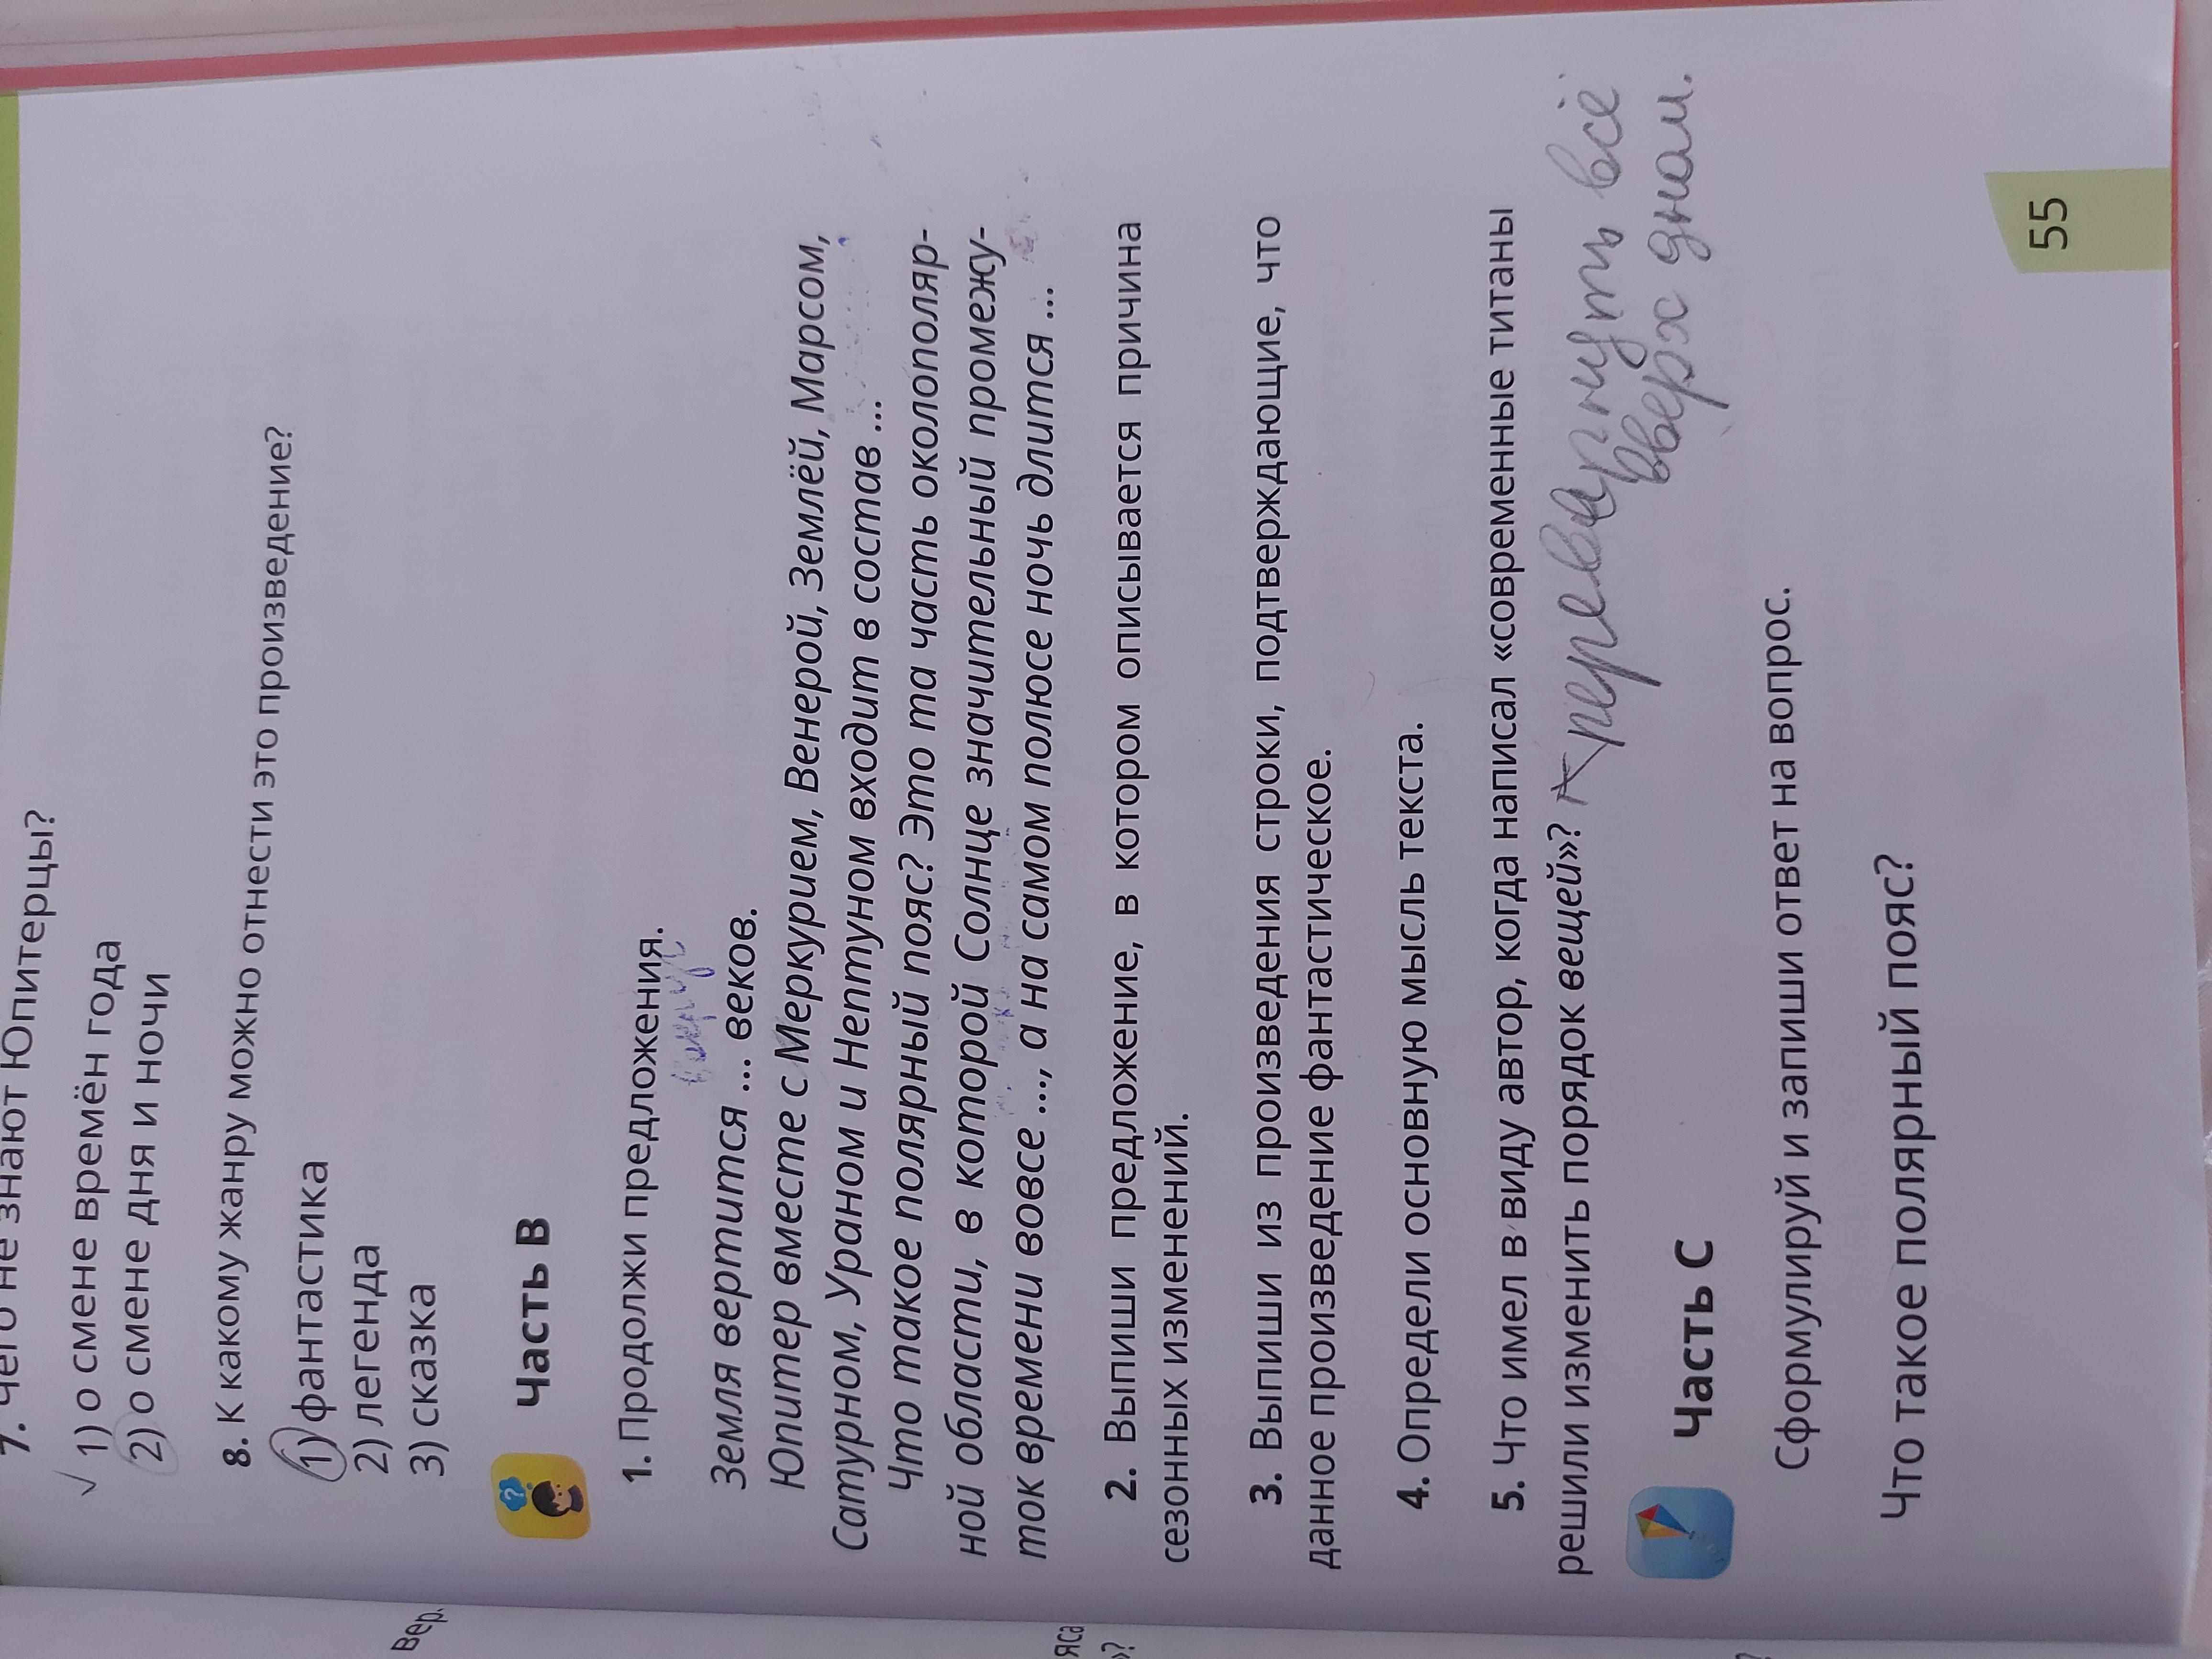 7. Чего не знают Юпитерцы?
✓ 1) о смене времён года
2) о смене дня и ночи
8. К какому жанру можно отнести это произведение?
1) фантастика
2) легенда
3) сказка
Часть В
1. Продолжи предложения.
Земля вертится ... веков.
Юпитер вместе с Меркурием, Венерой, Землёй, Марсом,
Сатурном, Ураном и Нептуном входит в состав ...
Что такое полярный пояс? Это та часть околополяр-
ной области, в которой Солнце значительный промежу-
ток времени вовсе ..., а на самом полюсе ночь длится ...
2. Выпиши предложение, в котором описывается причина
сезонных изменений.
3. Выпиши из произведения строки, подтверждающие, что
данное произведение фантастическое.
4. Определи основную мысль текста.
5. Что имел в виду автор, когда написал «современные титаны
решили изменить порядок вещей»?
всё
вверх дном.
Часть С
Сформулируй и запиши ответ на вопрос.
Что такое полярный пояс?
55
Вер.
яса
»?
?